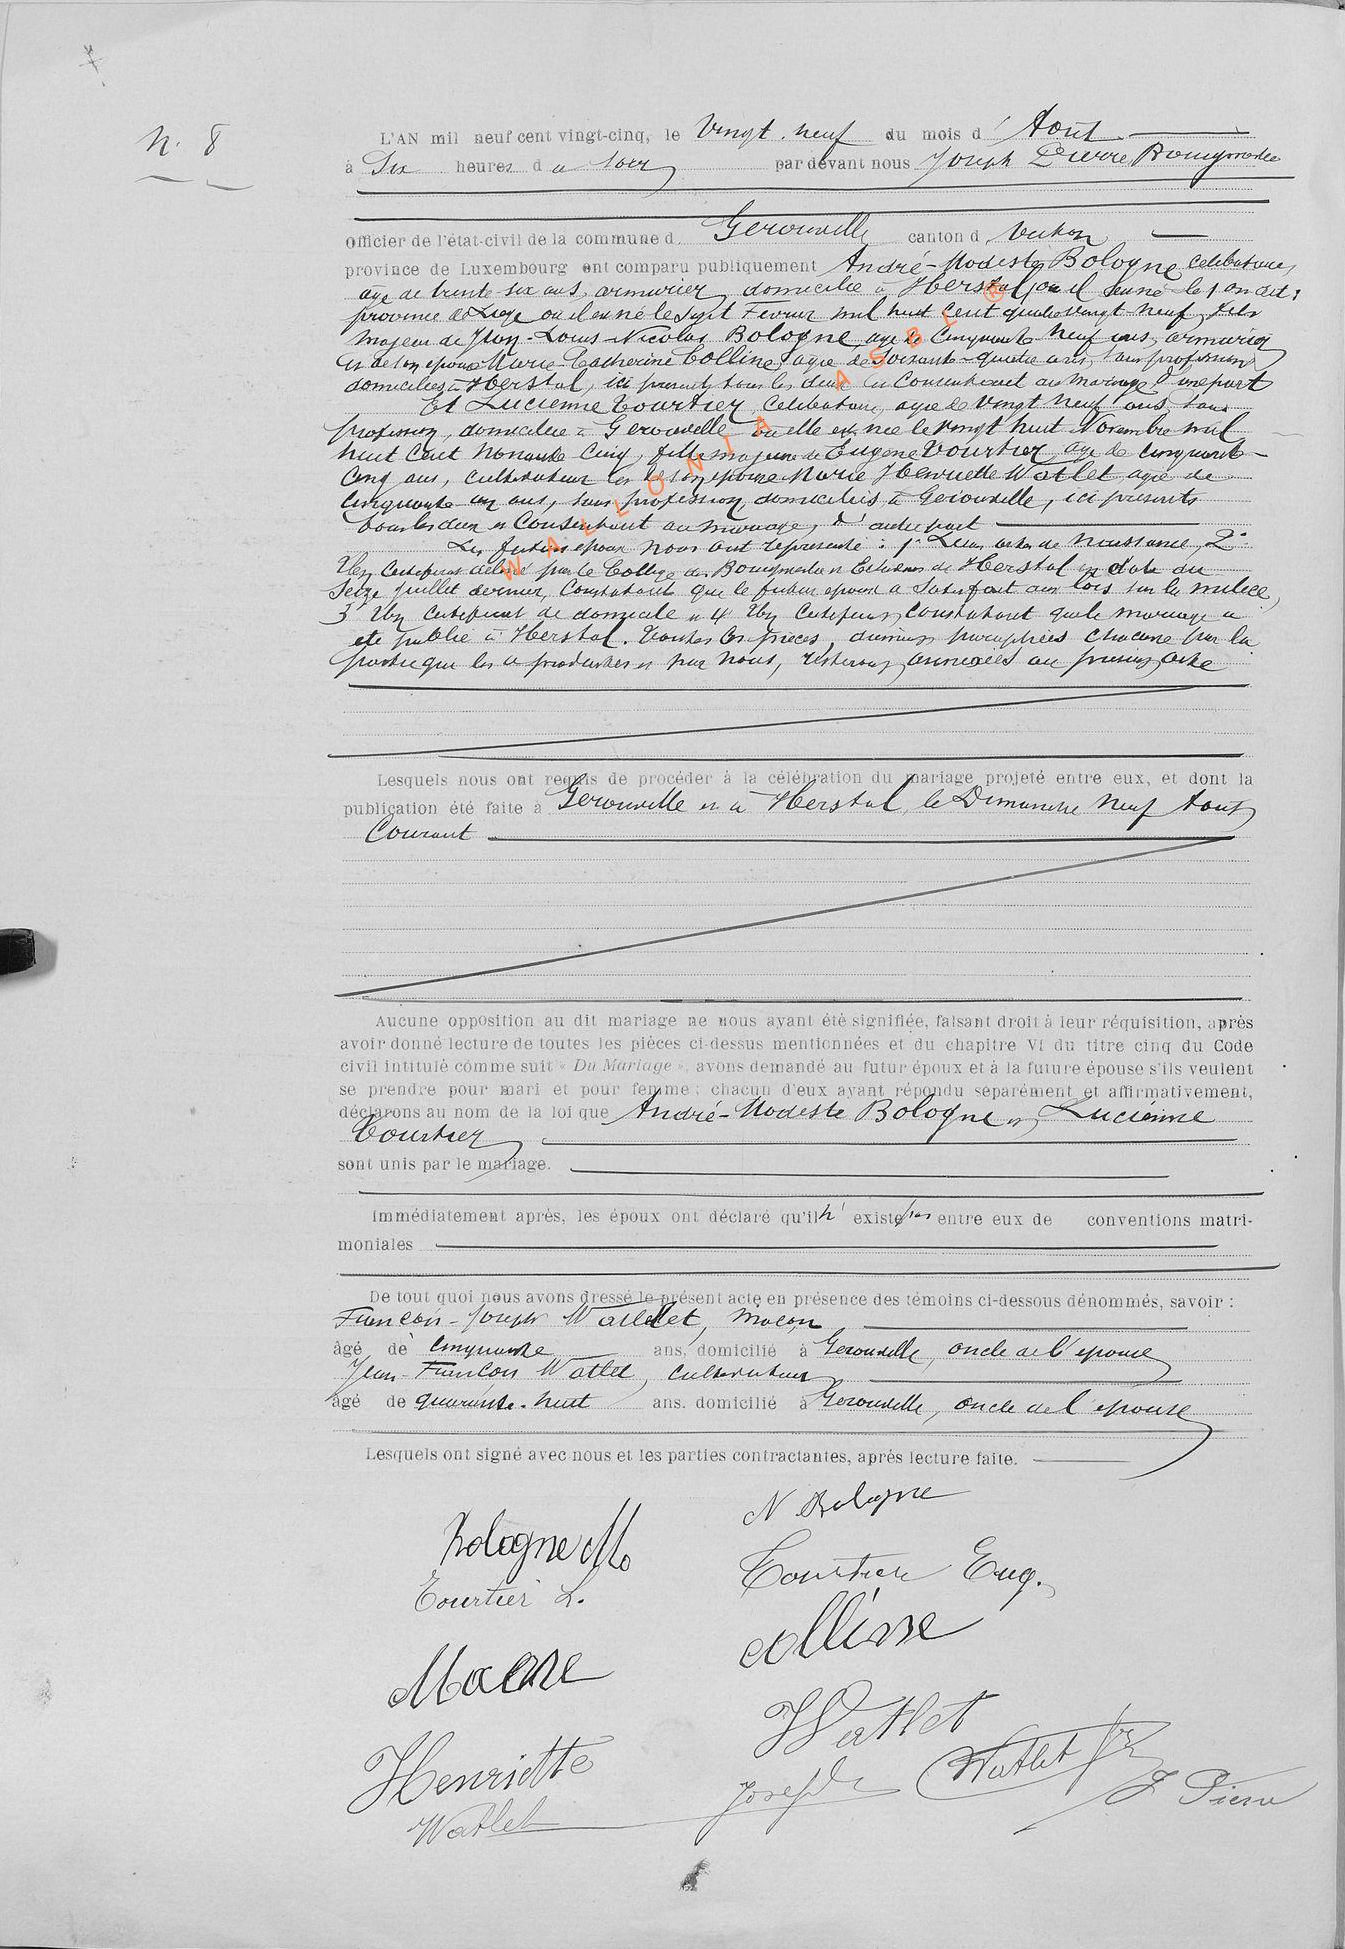 N. 8
L'AN mil neuf cent vingt-cinq, le Vingt. neuf du mois d' Août
à Six heures du soir par devant nous Joseph Pierre, Bourgmestre
Officier de l'état-civil de la commune d Gerouville canton d Virton
province de Luxembourg ont comparu publiquement André-Modeste Bologne célibataire,
âgé de trente six ans, armurier, domicilié à Herstal,
province de Liége où il est né le sept Février mil huit cent quatre vingt neuf, fils
majeur de Jean-Louis-Nicolas Bologne, âgé de Cinquante neuf ans, armurier
et de son épouse Marie Catherine Colline, agée de Soixante-quatre ans, sans profession
domiciliés à Herstal, ici présents tous les deux et Consentant au mariage d'une part
Et Lucienne Tourtier, Célibataire, agée de vingt neuf ans, sans
profession, domiciliée à Gerouville où elle est née le vingt huit Novembre mil
huit cent nonante cinq, fille majeure de Eugène Tourtier, âgé de cinquante-
cinq ans, cultivateur et de son épouse Marie Henriette Watlet agée de
cinquante un ans, sans profession, domiciliés à Gerouville, ici présents
tous les deux et Consentant au mariage, d'autre part
Les futurs époux nous ont représenté : 1° Leurs actes de naissance, 2°
Un Certificat délivré par le Collège des Bourgmestre et Echevins de Herstal en date du
Seize juillet dernier, Constatant que le futur époux a satisfait aux lois sur la milice,
3° Un certificat de domicile et 4° Un Certificat constatant que le mariage a
été publié à Herstal. Toutes les pièces, dûment paraphées chacune par la
partie qui les a produites et par nous, resteront annexées au présent acte
Lesquels nous ont requis de procéder à la célébration du mariage projeté entre eux, et dont la
publication été faite à Gerouville et à Herstal, le Dimanche neuf Août
Courant
Aucune opposition au dit mariage ne nous ayant été signifiée, faisant droit à leur réquisition, après
avoir donné lecture de toutes les pièces ci-dessus mentionnées et du chapitre VI du titre cinq du Code
civil intitulé comme suit « Du Mariage », avons demandé au futur époux et à la future épouse s'ils veulent
se prendre pour mari et pour femme ; chacun d'eux ayant répondu séparément et affirmativement,
déclarons au nom de la loi que André-Modeste Bologne et Lucienne
Tourtier
sont unis par le mariage.
Immédiatement après, les époux ont déclaré qu'il n' existe pas entre eux de conventions matri-
moniales
De tout quoi nous avons dressé le présent acte en présence des témoins ci-dessous dénommés, savoir :
François-Joseph Watlet, maçon
âgé de Cinquante ans, domicilié à Gerouville, oncle de l'épouse
Jean-François Watlet, cultivateur
âgé de quarante-huit ans, domicilié à Gerouville, oncle de l'épouse
Lesquels ont signé avec nous et les parties contractantes, après lecture faite.
N Bologne
Bologne Mo
Tourtier Eug.
Tourtier L.
Colline
Marie
Watlet
Henriette
Joseph Watlet
J Pierre
Watlet
WALLONIA ASBL ®